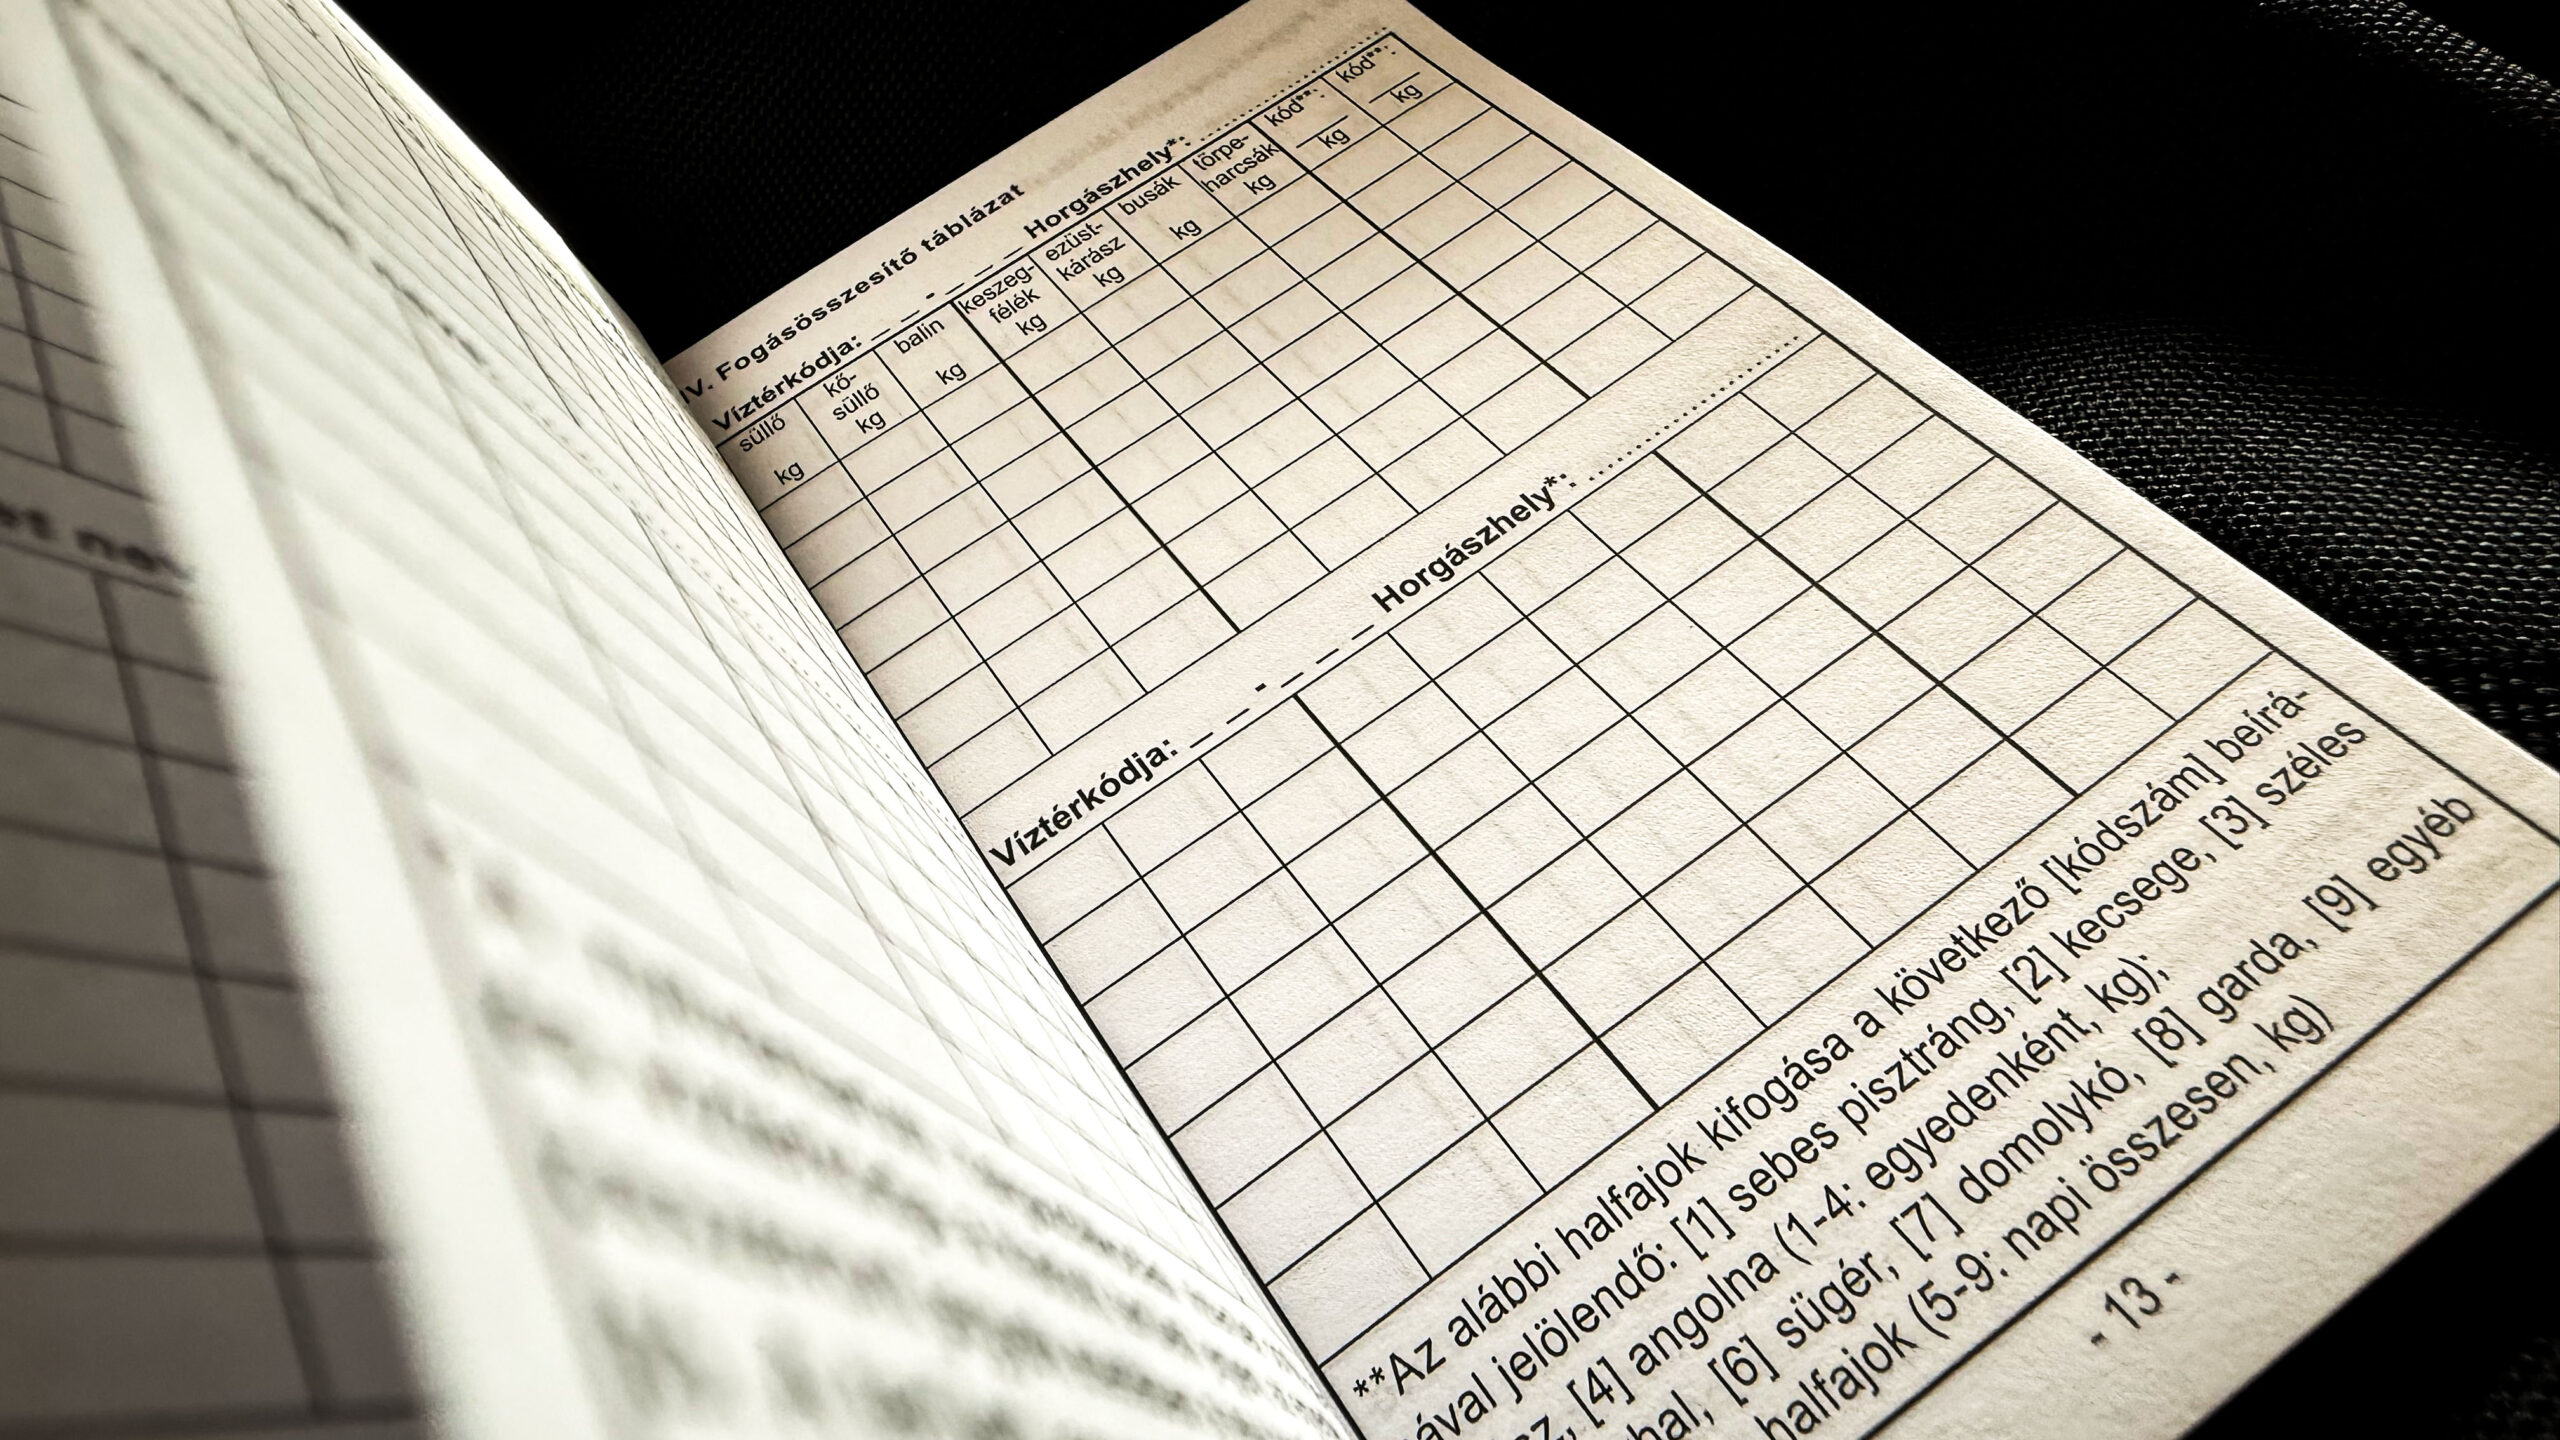 IV. Fogásösszesítő táblázat
Víztérkódja: _ _ - _ _ _ Horgászhely*: ..........
süllő kg
kő-
süllő
kg
balin kg
keszeg-
félék
kg
ezüst-
kárász
kg
busák kg
törpe-
harcsák
kg
kód**:
kg
kód**:
kg
Víztérkódja: _ _ - _ _ _ Horgászhely*: ..........
**Az alábbi halfajok kifogása a következő [kódszám] beírá-
ával jelölendő: [1] sebes pisztráng, [2] kecsege, [3] széles
sz, [4] angolna (1-4: egyedenként, kg);
hal, [6] sügér, [7] domolykó, [8] garda, [9] egyéb
halfajok (5-9: napi összesen, kg)
- 13 -